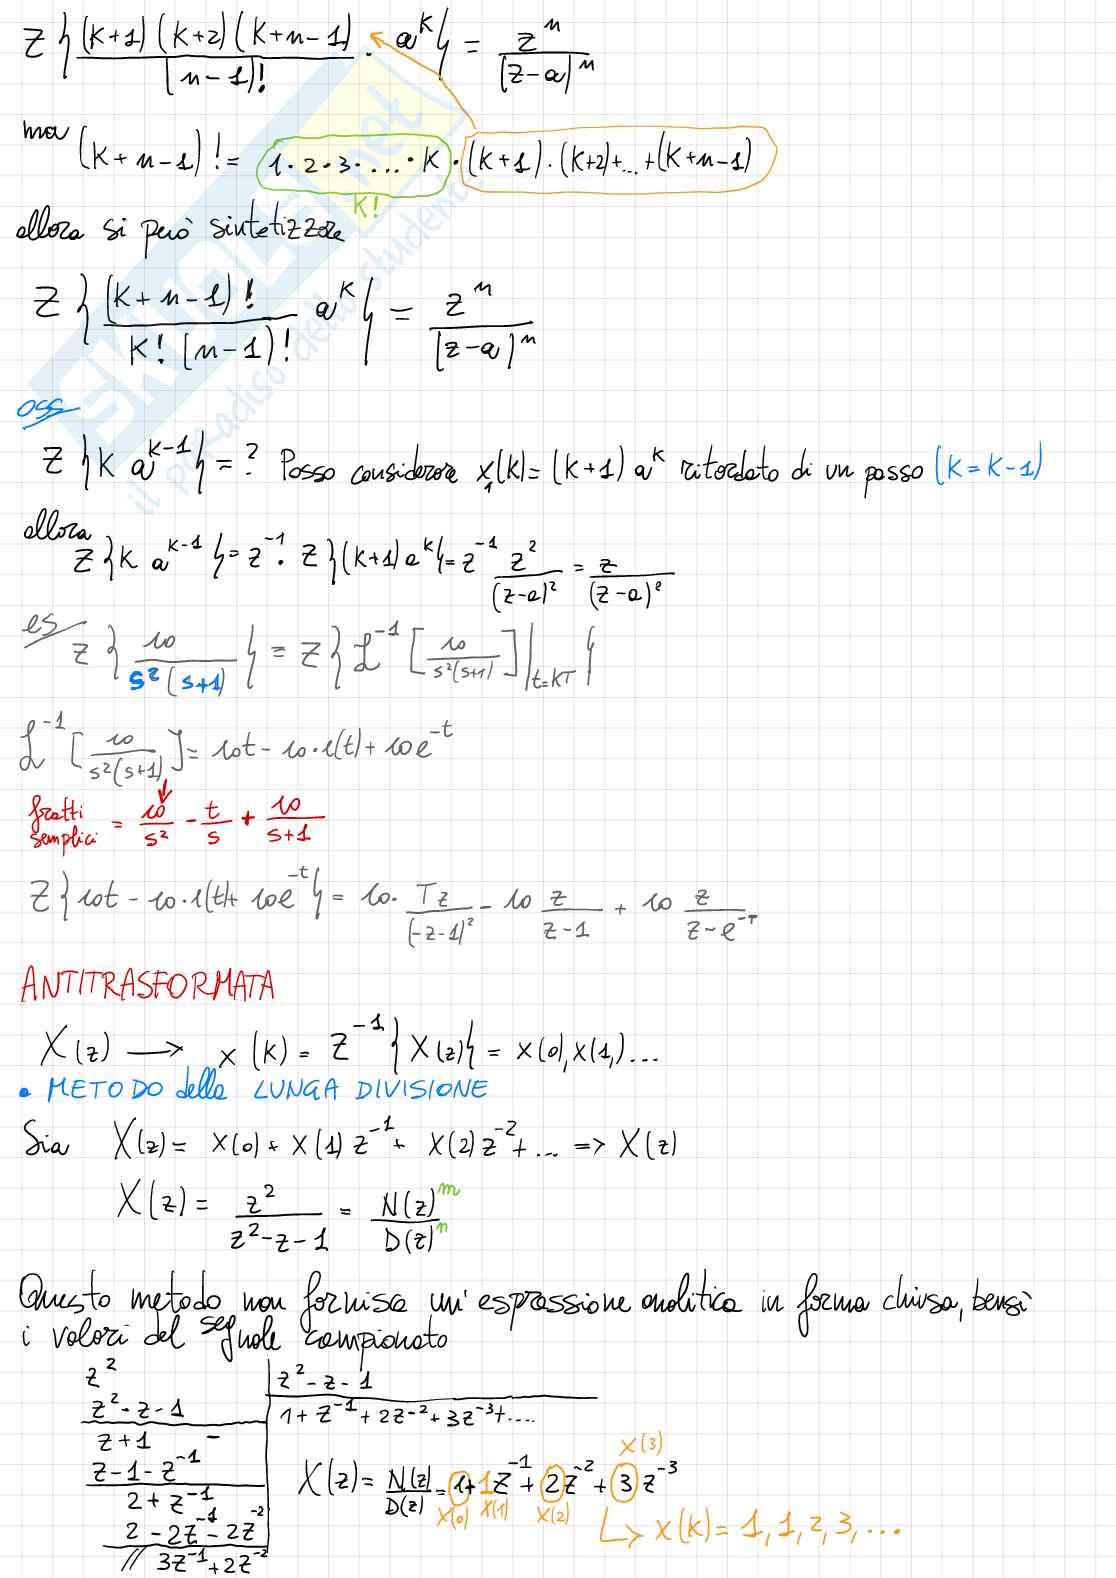 Z{ (K+1)(K+2)(K+n-1) / (n-1)! · a^K } = z^n / (z-a)^n
ma (K+n-1)! = 1·2·3·...·K · (K+1)·(K+2)+...+(K+n-1)
K!
allora si può sintetizzare
Z{ (K+n-1)! / K!(n-1)! a^K } = z^n / (z-a)^n
oss
Z{K a^{K-1}} = ? Posso considerare x₁(K) = (K+1) a^K ritardato di un passo (K=K-1)
allora Z{K a^{K-1}} = z^{-1} · Z{(K+1) a^K} = z^{-1} z²/(z-a)² = z/(z-a)²
es Z{ 10 / s²(s+1) } = Z{ ℒ^{-1} [ 10 / s²(s+1) ] |t=KT }
ℒ^{-1} [ 10 / s²(s+1) ] = 10t - 10·1(t) + 10e^{-t}
fratti semplici = 10/s² - t/s + 10/(s+1)
Z{10t - 10·1(t) + 10e^{-t}} = 10· Tz/(-z-1)² - 10 z/(z-1) + 10 z/(z-e^{-T})
ANTITRASFORMATA
X(z) → x(K) = Z^{-1}{X(z)} = x(0), x(1,)...
• METODO della LUNGA DIVISIONE
Sia X(z) = x(0) + x(1) z^{-1} + x(2) z^{-2} + ... => X(z)
X(z) = z² / (z²-z-1) = N(z)^m / D(z)^n
Questo metodo non fornisce un'espressione analitica in forma chiusa, bensì
i valori del segnale campionato
z² | z²-z-1
z²-z-1 | 1+z^{-1}+2z^{-2}+3z^{-3}+....
z+1 -
z-1-z^{-1}
x(3)
2+z^{-1} X(z) = N(z)/D(z) = 1+1z^{-1}+2z^{-2}+3z^{-3}
x(0) x(1) x(2)
2-2z^{-1}-2z^{-2} ↳ x(K) = 1, 1, 2, 3, ...
// 3z^{-1}+2z^{-2}
SKUOLA.net
il paradiso dello studente